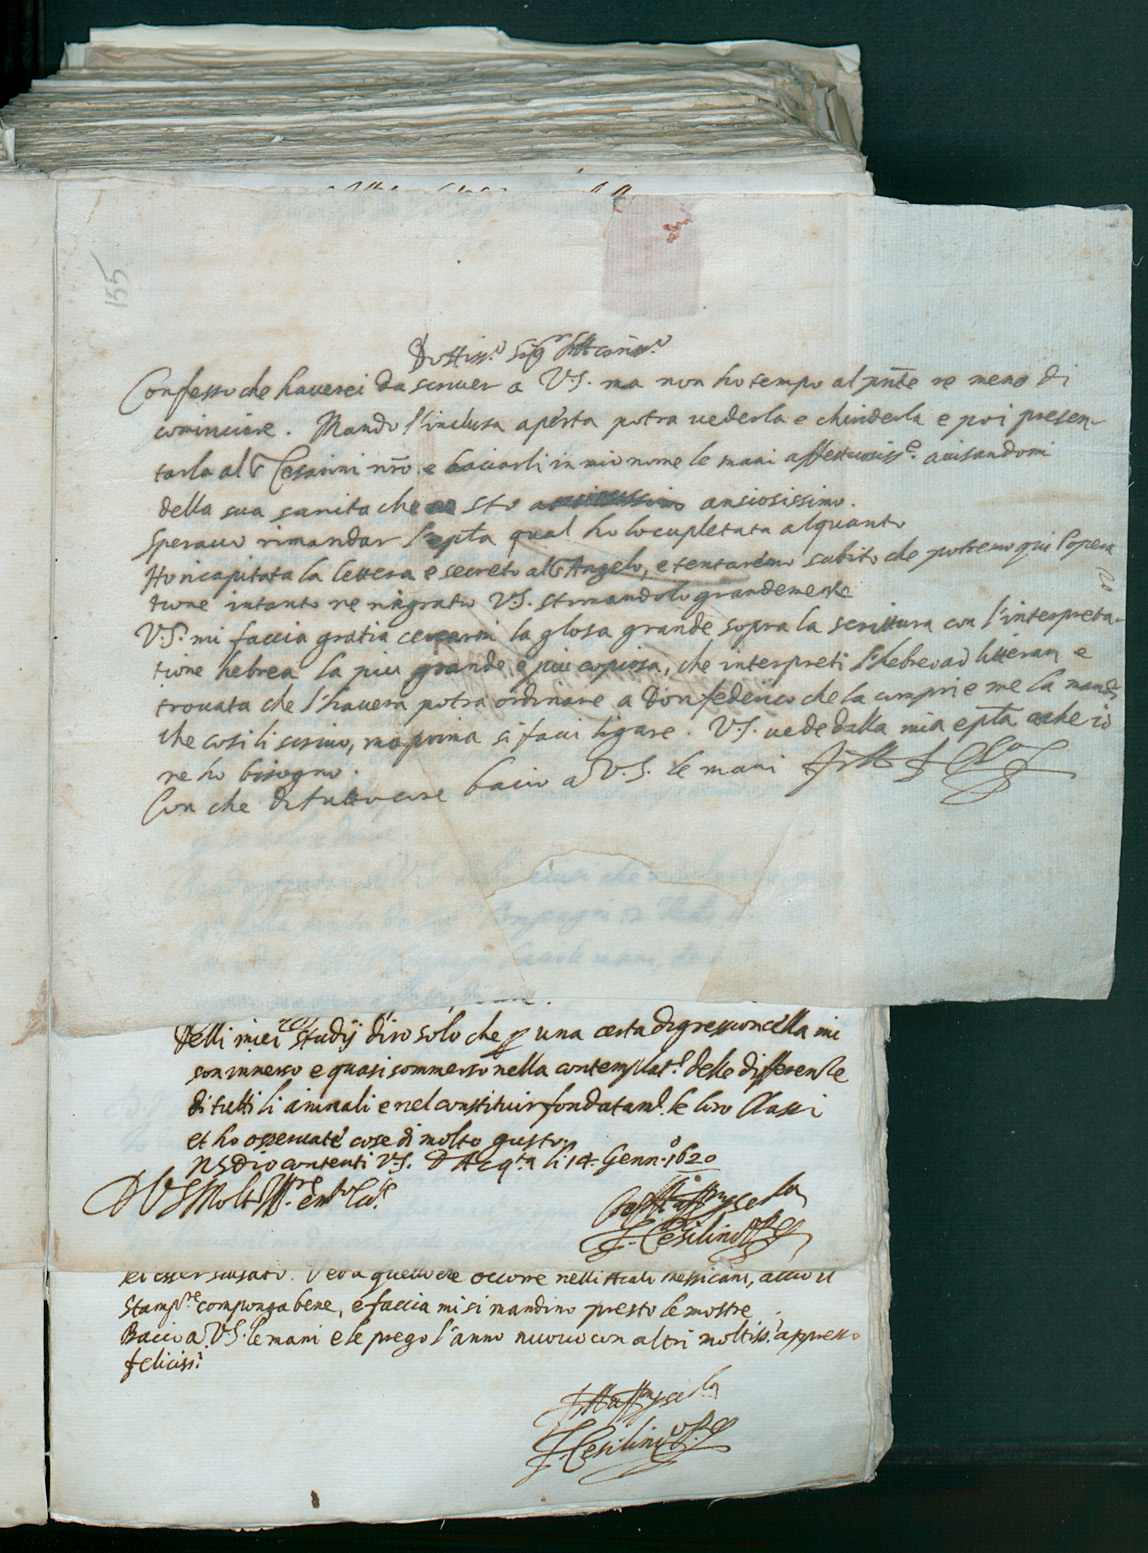 155
Dottiss.o Sig.r
Confesso che haverei da scriver a V.S. ma non ho tempo al pñte ne meno di
cominciare. Mando l'inclusa aperta potra vederla e chiuderla e poi presen-
tarla al S.r Cesarini nrõ e baciarli in mio nome le mani affettuosiss.e avisandomi
della sua sanita che ne sto ansiosissimo.
Speravo rimandar l'epla qual ho locupletata alquanto
Ho ricapitata la lettera e secreto all'Angelo, e tentaremo subito che potremo qui l'opera
tione intanto ne ringratio V.S. stimandolo grandemente
V.S. mi faccia gratia cercarmi la glosa grande sopra la scrittura con l'interpreta-
tione hebrea la piu grande e piu copiosa, che interpreti l'hebreo ad litteram e
trovata che l'havera potra ordinare a Don federico che la compri e me la mandi
che cosi li scrivo, ma prima si facci ligare. V.S. vede dalla mia epla che io
ne ho bisogno.
Con che di tutto core bacio a V.S. le mani
Delli miei studij diro solo che p una certa digressioncella mi
son immerso e quasi sommerso nella contemplat.e delle differenze
di tutti li animali e nel constituir fondatam.te le loro Classi
et ho osservate cose di molto gusto
NS Dio contenti V.S. D Acq.ta li 14. Genn.o 1620
D V S Molt Ill.re
F. Cesi Linceo P.
esser scusato. Veda quello che occorre nelli messicani, accio il
Stamp.re componga bene, e faccia mi si mandino presto le mostre.
Bacio a V.S. le mani e le prego l'anno nuovo con altri moltiss.i appresso
feliciss.i
F. Cesi Linceo P.